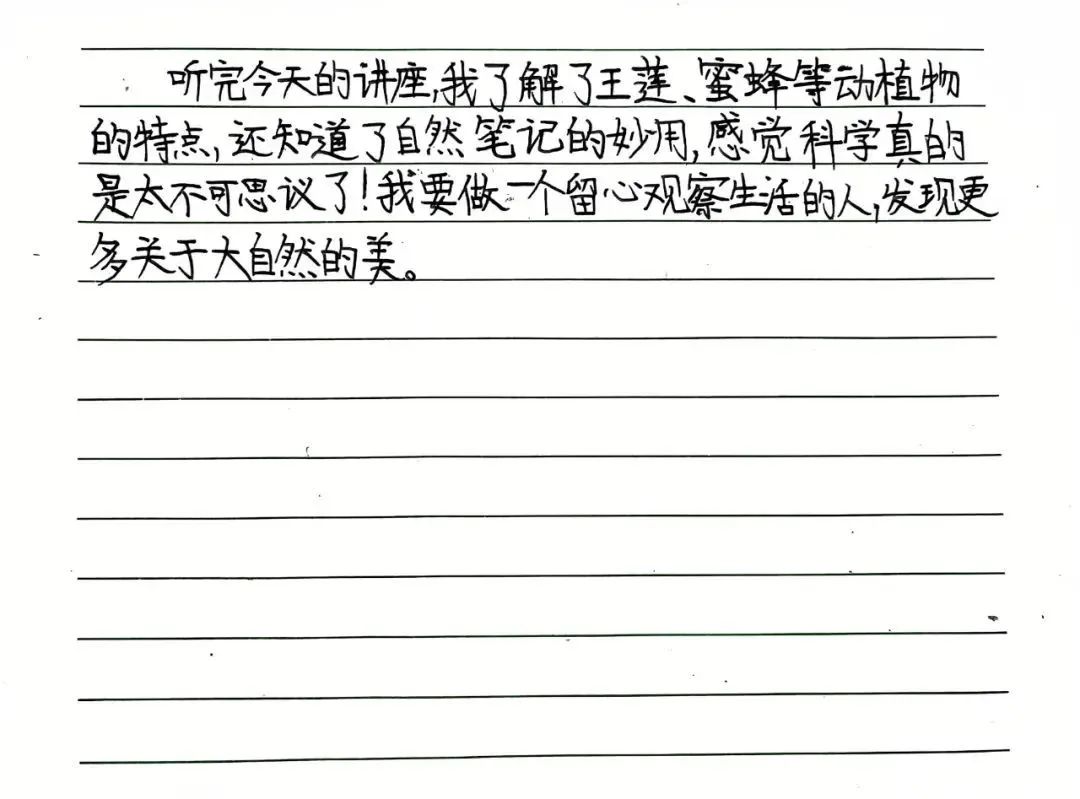 听完今天的讲座,我了解了王莲、蜜蜂等动植物
的特点,还知道了自然笔记的妙用,感觉科学真的
是太不可思议了!我要做一个留心观察生活的人,发现更
多关于大自然的美。